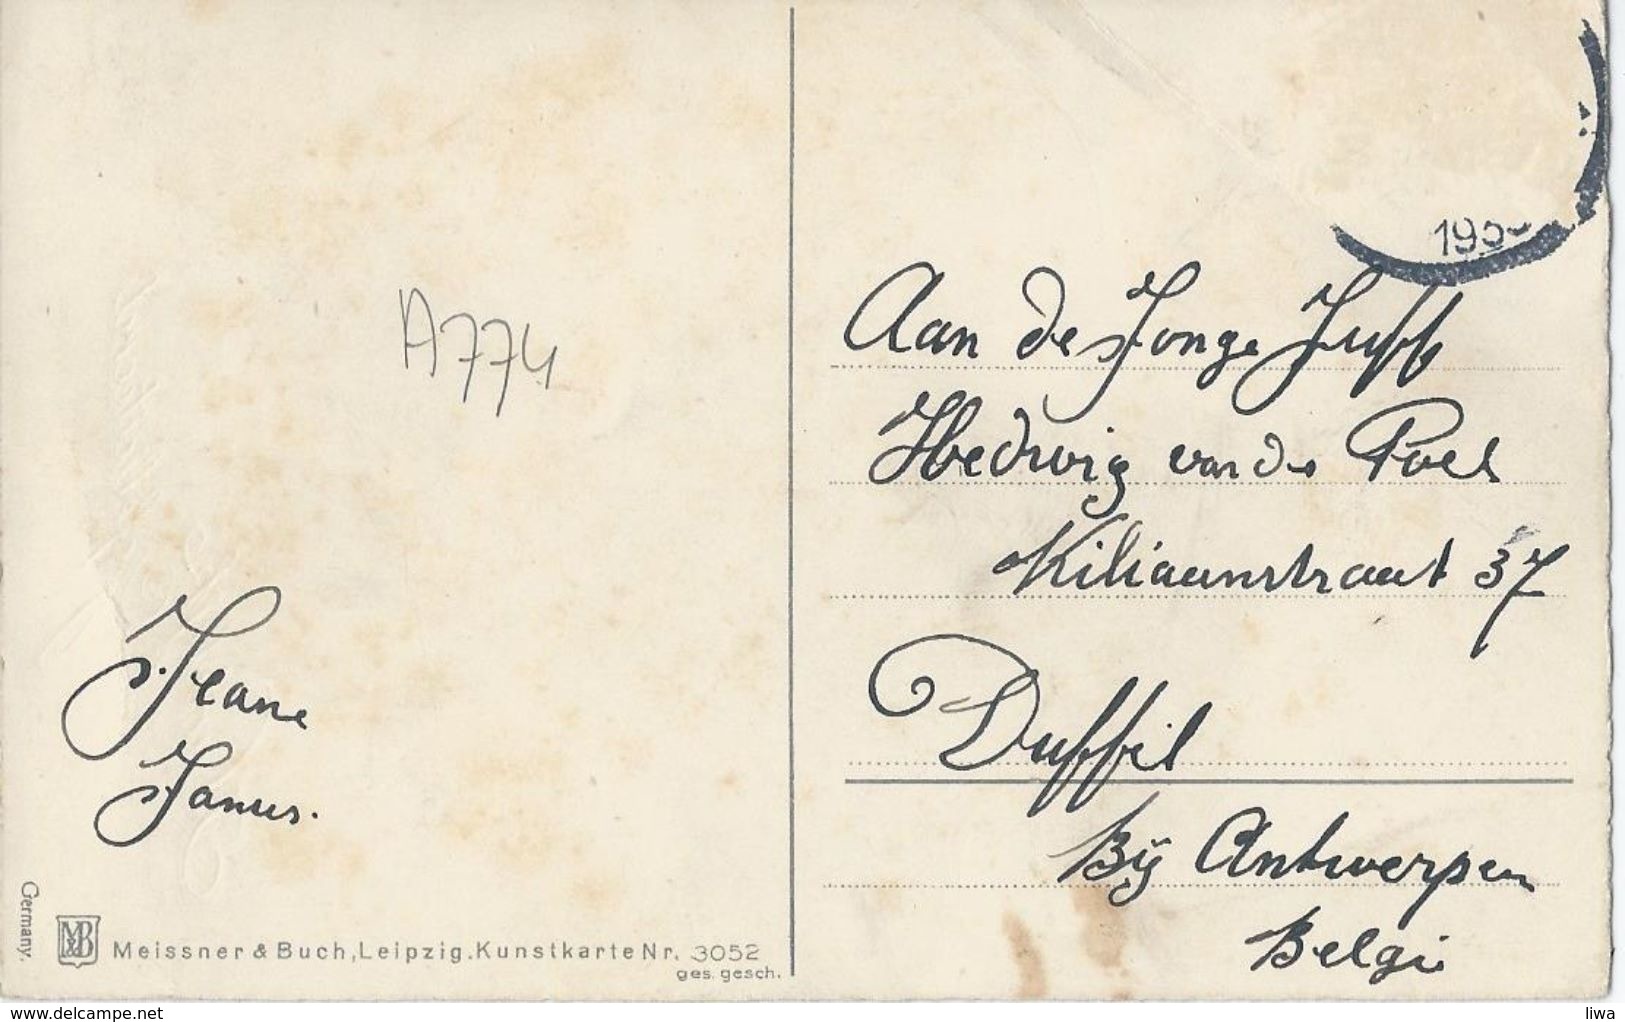 A774
Jeane
Janus.
Germany.
M&B
Meissner & Buch, Leipzig. Kunstkarte Nr. 3052
ges. gesch.
Aan de Jonge Juff
Hedwig van de Poel
Kiliaanstraat 37
Duffel
Bij Antwerpen
Belgi
www.delcampe.net
liwa